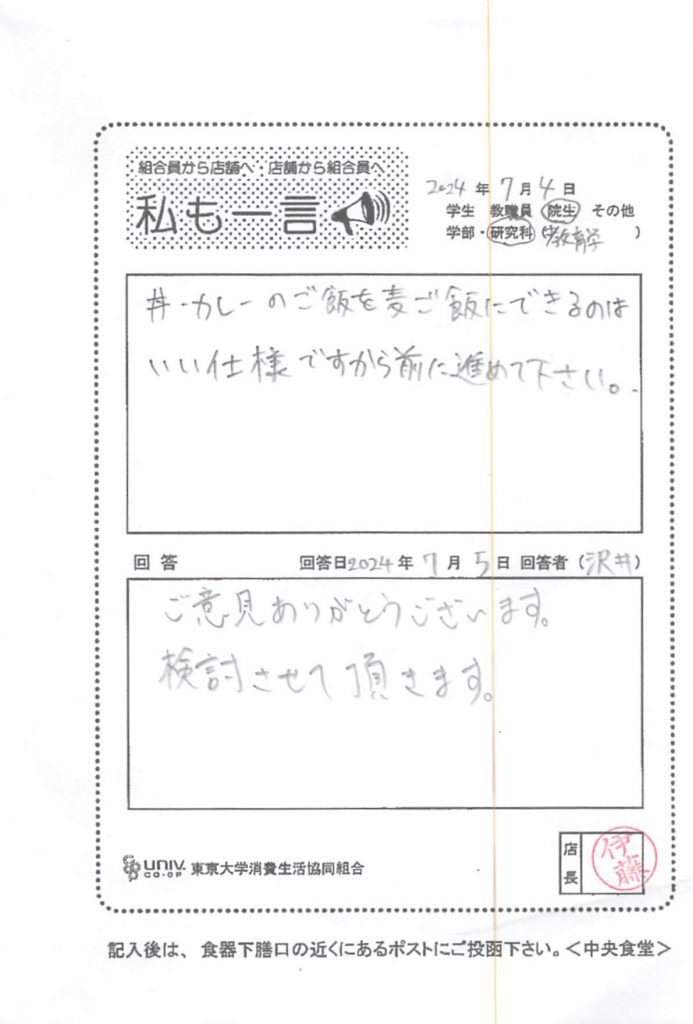 組合員から店舗へ・店舗から組合員へ
私も一言
2024 年 7 月 4 日
学生 教職員 院生 その他
学部・研究科 (教育学)
丼・カレーのご飯を麦ご飯にできるのは
いい仕様ですから前に進めて下さい。
回答 回答日2024年 7 月 5 日 回答者 (沢井)
ご意見ありがとうございます。
検討させて頂きます。
UNIV. CO-OP 東京大学消費生活協同組合
店長 伊藤
記入後は、食器下膳口の近くにあるポストにご投函下さい。<中央食堂>